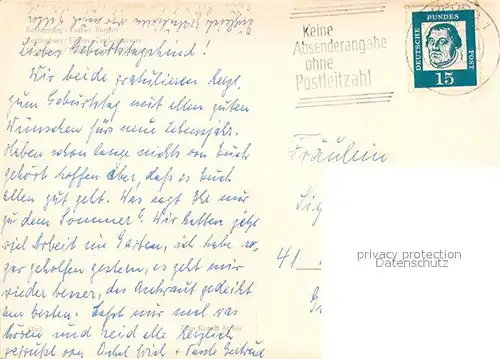 Liebes Geburtstagskind!
Wir beide gratulieren herzl.
zum Geburtstag mit allen guten
Wünschen fürs neue Lebensjahr.
Haben schon lange nichts von Euch
gehört hoffen aber, daß es Euch
allen gut geht. Was sagt Ihr nur
zu dem Sommer? Wir hatten jetzt
viel Arbeit im Garten, ich habe so-
gar geholfen gestern, es geht mir
wieder besser, das Unkraut gedeiht
am besten. Laßt mal was
hören und seid alle herzlich
gegrüßt von Onkel Erich + Tante Gertrud
Keine
Absenderangabe
ohne
Postleitzahl
DEUTSCHE BUNDESPOST
15
Fräulein
41
privacy protection
Datenschutz